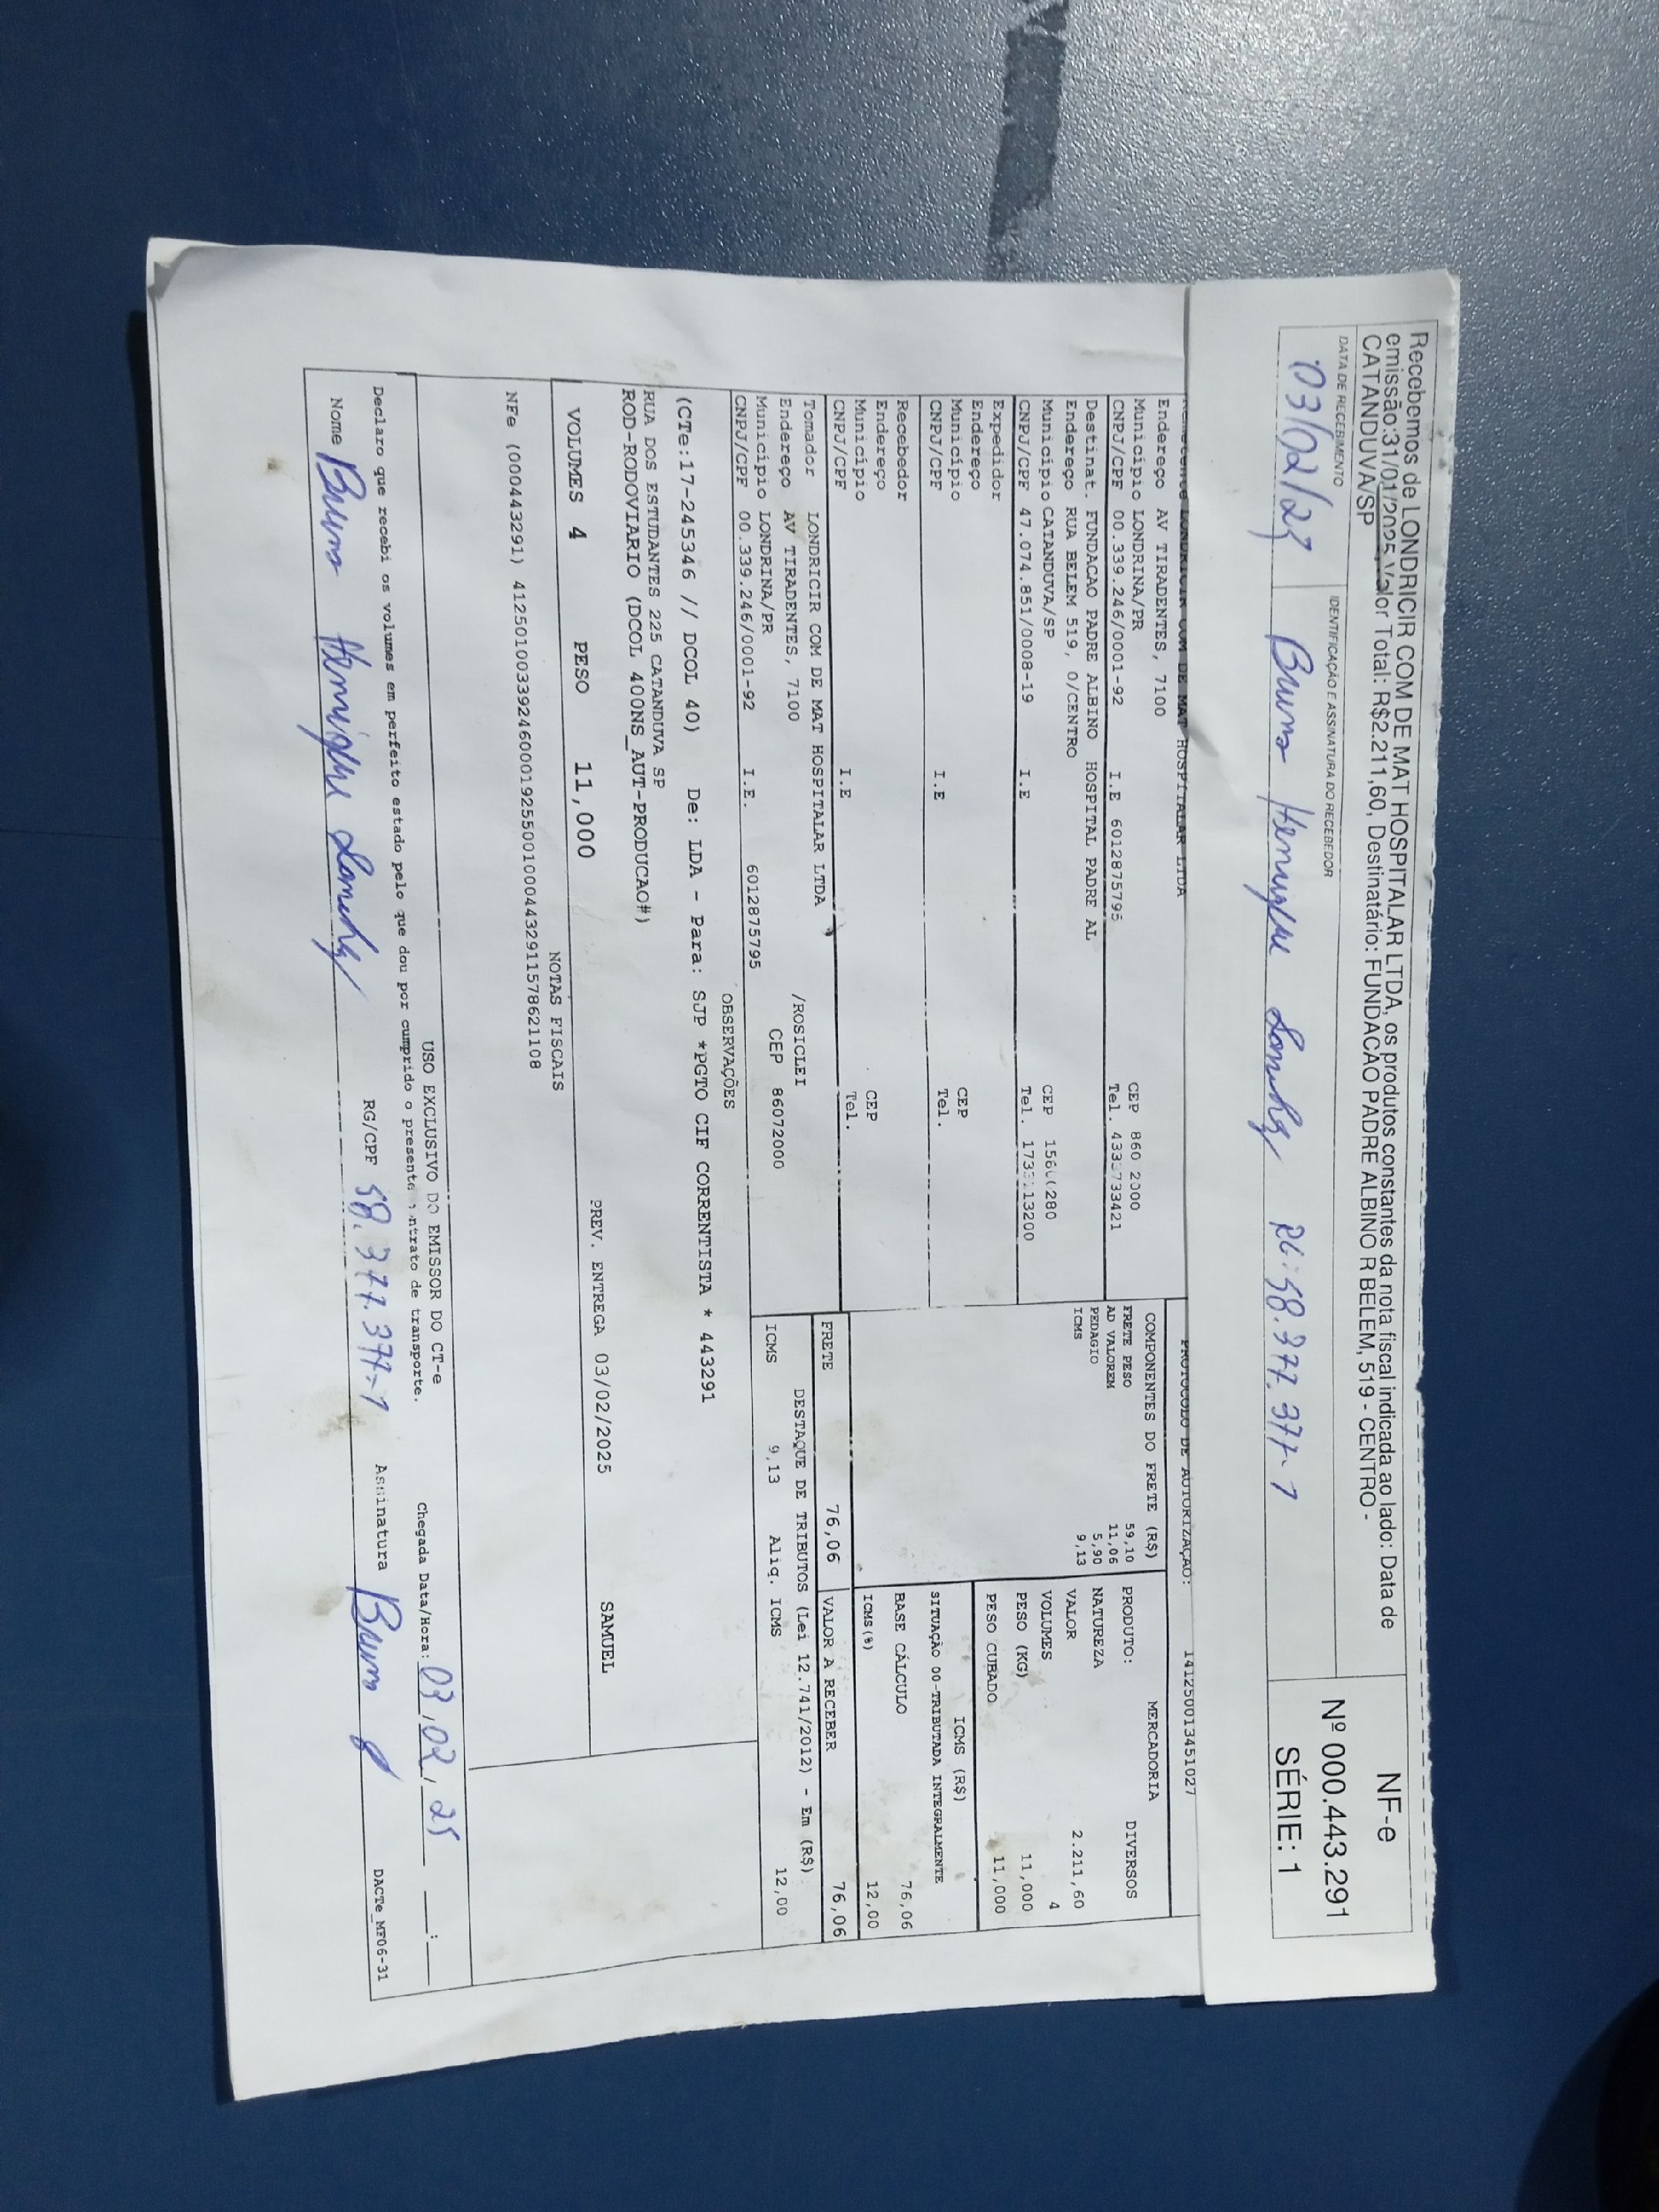 Recebemos de LONDRICIR COM DE MAT HOSPITALAR LTDA, os produtos constantes da nota fiscal indicada ao lado: Data de
emissão:31/01/2025 Valor Total: R$2.211,60, Destinatário: FUNDACAO PADRE ALBINO R BELEM, 519 - CENTRO -
CATANDUVA/SP
DATA DE RECEBIMENTO
IDENTIFICAÇÃO E ASSINATURA DO RECEBEDOR
03/02/25 Bruno Henrique RG: 58.377.377-1
NF-e
Nº 000.443.291
SÉRIE: 1
LONDRICIR COM DE MAT HOSPITALAR LTDA
PROTOCOLO DE AUTORIZAÇÃO: 141250013451027
Endereço AV TIRADENTES, 7100
Município LONDRINA/PR CEP 860 2000
CNPJ/CPF 00.339.246/0001-92 I.E 6012875795 Tel. 433 733421
Destinat. FUNDACAO PADRE ALBINO HOSPITAL PADRE AL
Endereço RUA BELEM 519, 0/CENTRO
Município CATANDUVA/SP CEP 280
CNPJ/CPF 47.074.851/0008-19 I.E Tel. 13200
Expedidor
Endereço
Município CEP
CNPJ/CPF I.E Tel.
Recebedor
Endereço
Município CEP
CNPJ/CPF I.E Tel.
Tomador LONDRICIR COM DE MAT HOSPITALAR LTDA
Endereço AV TIRADENTES, 7100 /ROSICLEI
Município LONDRINA/PR CEP 86072000
CNPJ/CPF 00.339.246/0001-92 I.E. 6012875795
COMPONENTES DO FRETE (R$)
FRETE PESO 59,10
AD VALOREM 11,06
PEDAGIO 5,90
ICMS 9,13
MERCADORIA
PRODUTO: DIVERSOS
NATUREZA
VALOR 2.211,60
VOLUMES 4
PESO (KG) 11,000
PESO CUBADO 11,000
ICMS (R$)
SITUAÇÃO 00-TRIBUTADA INTEGRALMENTE
BASE CÁLCULO 76,06
ICMS(%) 12,00
FRETE 76,06 VALOR A RECEBER 76,06
DESTAQUE DE TRIBUTOS (Lei 12.741/2012) - Em (R$)
ICMS 9,13 Aliq. ICMS 12,00
OBSERVAÇÕES
(CTe:17-245346 // DCOL 40) De: LDA - Para: SJP *PGTO CIF CORRENTISTA * 443291
RUA DOS ESTUDANTES 225 CATANDUVA SP
ROD-RODOVIARIO (DCOL 400NS_AUT-PRODUCAO#)
VOLUMES 4 PESO 11,000 PREV. ENTREGA 03/02/2025 SAMUEL
NOTAS FISCAIS
NFe (000443291) 41250100339246000192550010004432911578621108
USO EXCLUSIVO DO EMISSOR DO CT-e
Declaro que recebi os volumes em perfeito estado pelo que dou por cumprido o presente contrato de transporte.
Chegada Data/Hora: 03/02/25 __:__
Nome Bruno Henrique RG/CPF 58.377.377-1 Assinatura Bruno
DACTe_MF06-31